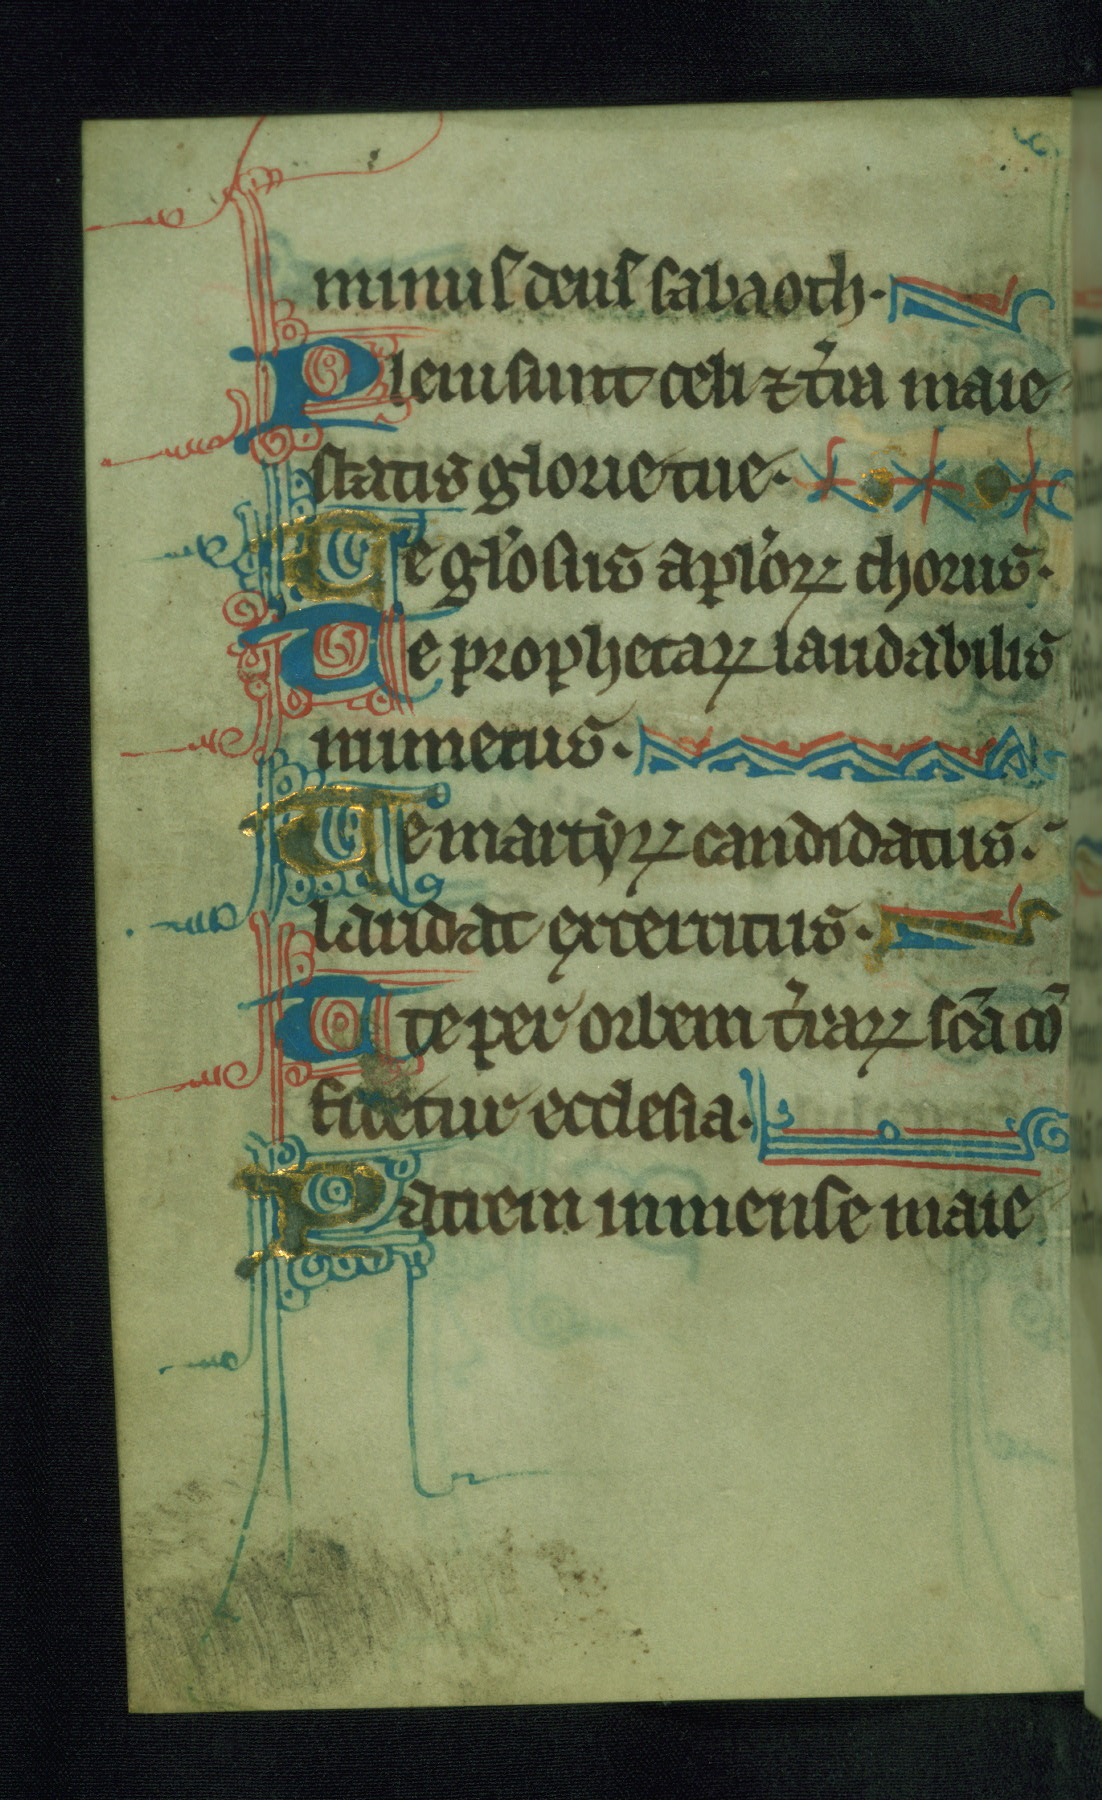 minus deus sabaoth.
Pleni sunt celi ⁊ t̾ra maie
statis glorie tue.
Te gl̾osus apl̾oꝝ chorus.
Te prophetaꝝ laudabilis
numerus.
Te martẏꝝ candidatus.
laudat exercitus.
Te per orbem t̾raꝝ sc̄a cō
fitetur ecclesia.
Patrem inmense maie